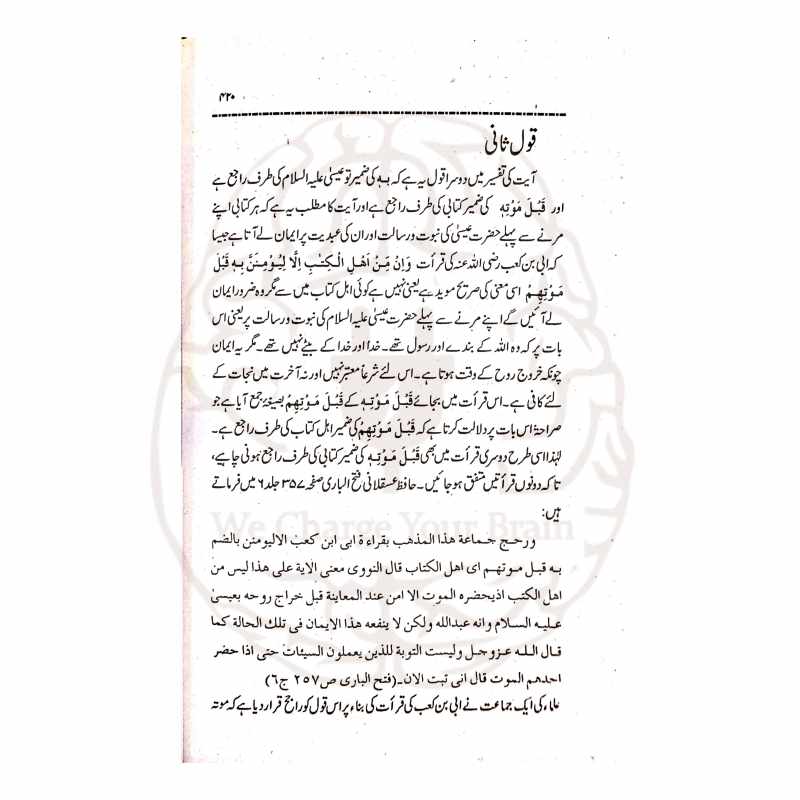 ۴۲۰
قول ثانی
آیت کی تفسیر میں دوسرا قول یہ ہے کہ بہ کی ضمیر تو عیسیٰ علیہ السلام کی طرف راجع ہے
اور قَبْلَ مَوْتِهٖ کی ضمیر کتابی کی طرف راجع ہے اور آیت کا مطلب یہ ہے کہ ہر کتابی اپنے
مرنے سے پہلے حضرت عیسیٰ کی نبوت و رسالت اور ان کی عبدیت پر ایمان لے آتا ہے جیسا
کہ ابی بن کعب رضی اللہ عنہ کی قرأت وَاِنْ مِّنْ اَهْلِ الْكِتٰبِ اِلَّا لِيُوْمِنَنَّ بِهٖ قَبْلَ
مَوْتِهِمْ اسی معنی کی صریح موید ہے یعنی نہیں ہے کوئی اہل کتاب میں سے مگر وہ ضرور ایمان
لے آئیں گے اپنے مرنے سے پہلے حضرت عیسیٰ علیہ السلام کی نبوت و رسالت پر یعنی اس
بات پر کہ وہ اللہ کے بندے اور رسول تھے۔ خدا اور خدا کے بیٹے نہیں تھے۔ مگر یہ ایمان
چونکہ خروج روح کے وقت ہوتا ہے۔ اس لئے شرعاً معتبر نہیں اور نہ آخرت میں نجات کے
لئے کافی ہے۔ اس قرأت میں بجائے قَبْلَ مَوْتِهٖ کے قَبْلَ مَوْتِهِمْ بصیغۂ جمع آیا ہے جو
صراحۃ اس بات پر دلالت کرتا ہے کہ قَبْلَ مَوْتِهِمْ کی ضمیر اہل کتاب کی طرف راجع ہے۔
لہٰذا اسی طرح دوسری قرأت میں بھی قَبْلَ مَوْتِهٖ کی ضمیر کتابی کی طرف راجع ہونی چاہیے،
تاکہ دونوں قرأتیں متفق ہو جائیں۔ حافظ عسقلانی فتح الباری صفحہ ۳۵۷ جلد ۶ میں فرماتے
ہیں:
We Charge Your Brain
ورجح جماعة هذا المذهب بقراءة ابی ابن کعب الالیومنن بالضم
به قبل موتهم ای اهل الکتاب قال النووی معنی الایة علی هذا لیس من
اهل الکتب اذیحضره الموت الا امن عند المعاینة قبل خراج روحه بعیسیٰ
علیه السلام وانه عبدالله ولکن لا ینفعه هذا الایمان فی تلك الحالة کما
قال الله عزوجل ولیست التوبة للذین یعملون السیئات حتی اذا حضر
احدهم الموت قال انی تبت الان۔ (فتح الباری ص ۲۵۷ ج۶)
علماء کی ایک جماعت نے ابی بن کعب کی قرأت کی بناء پر اس قول کو راجح قرار دیا ہے کہ موتہ